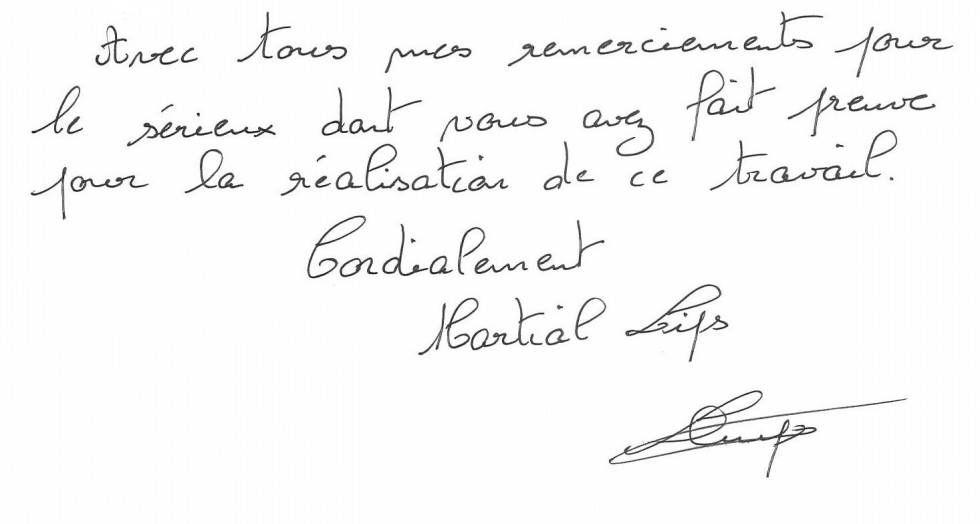 Avec tous mes remerciements pour
le sérieux dont vous avez fait preuve
pour la réalisation de ce travail.
Cordialement
Martial Lips